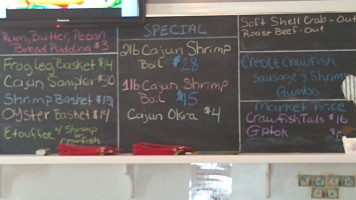 Rum, Butter, Pecan
Bread Pudding $3
Frog leg Basket $14
Cajun Sampler $20
Shrimp Basket $13
Oyster Basket $19
Etouffee w/ Shrimp
or Crawfish
SPECIAL
2lb Cajun Shrimp
Boil $28
1lb Cajun Shrimp
Boil $15
Cajun Okra $4
Soft Shell Crab - Out
Roast Beef - Out
Creole Crawfish
Sausage & Shrimp
Gumbo
Market Price
Crawfish Tails $16
Gator